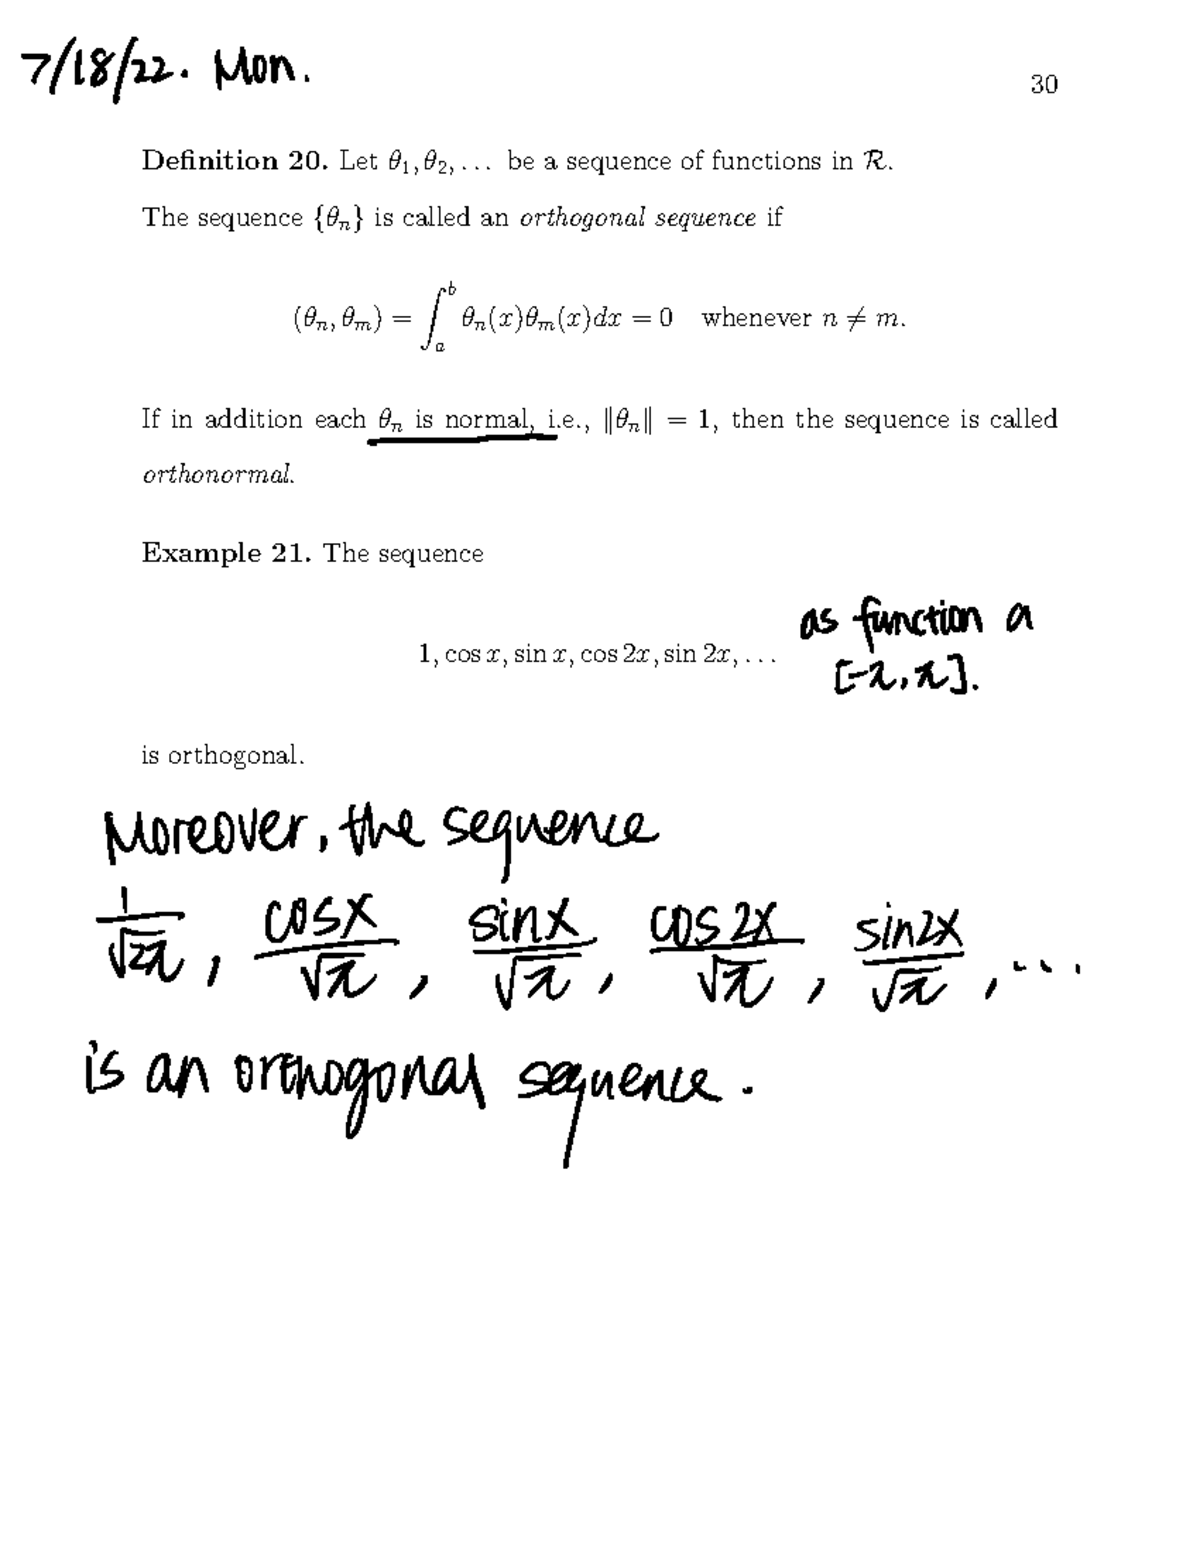 7/18/22. Mon.
30
Definition 20. Let θ₁, θ₂, . . . be a sequence of functions in ℛ.
The sequence {θₙ} is called an orthogonal sequence if
(θₙ, θₘ) = ∫ₐᵇ θₙ(x)θₘ(x)dx = 0 whenever n ≠ m.
If in addition each θₙ is normal, i.e., ‖θₙ‖ = 1, then the sequence is called
orthonormal.
Example 21. The sequence
as function a
1, cos x, sin x, cos 2x, sin 2x, . . .
[-π, π].
is orthogonal.
Moreover, the sequence
1/√2π, cosx/√π, sinx/√π, cos2x/√π, sin2x/√π, ...
is an orthogonal sequence.